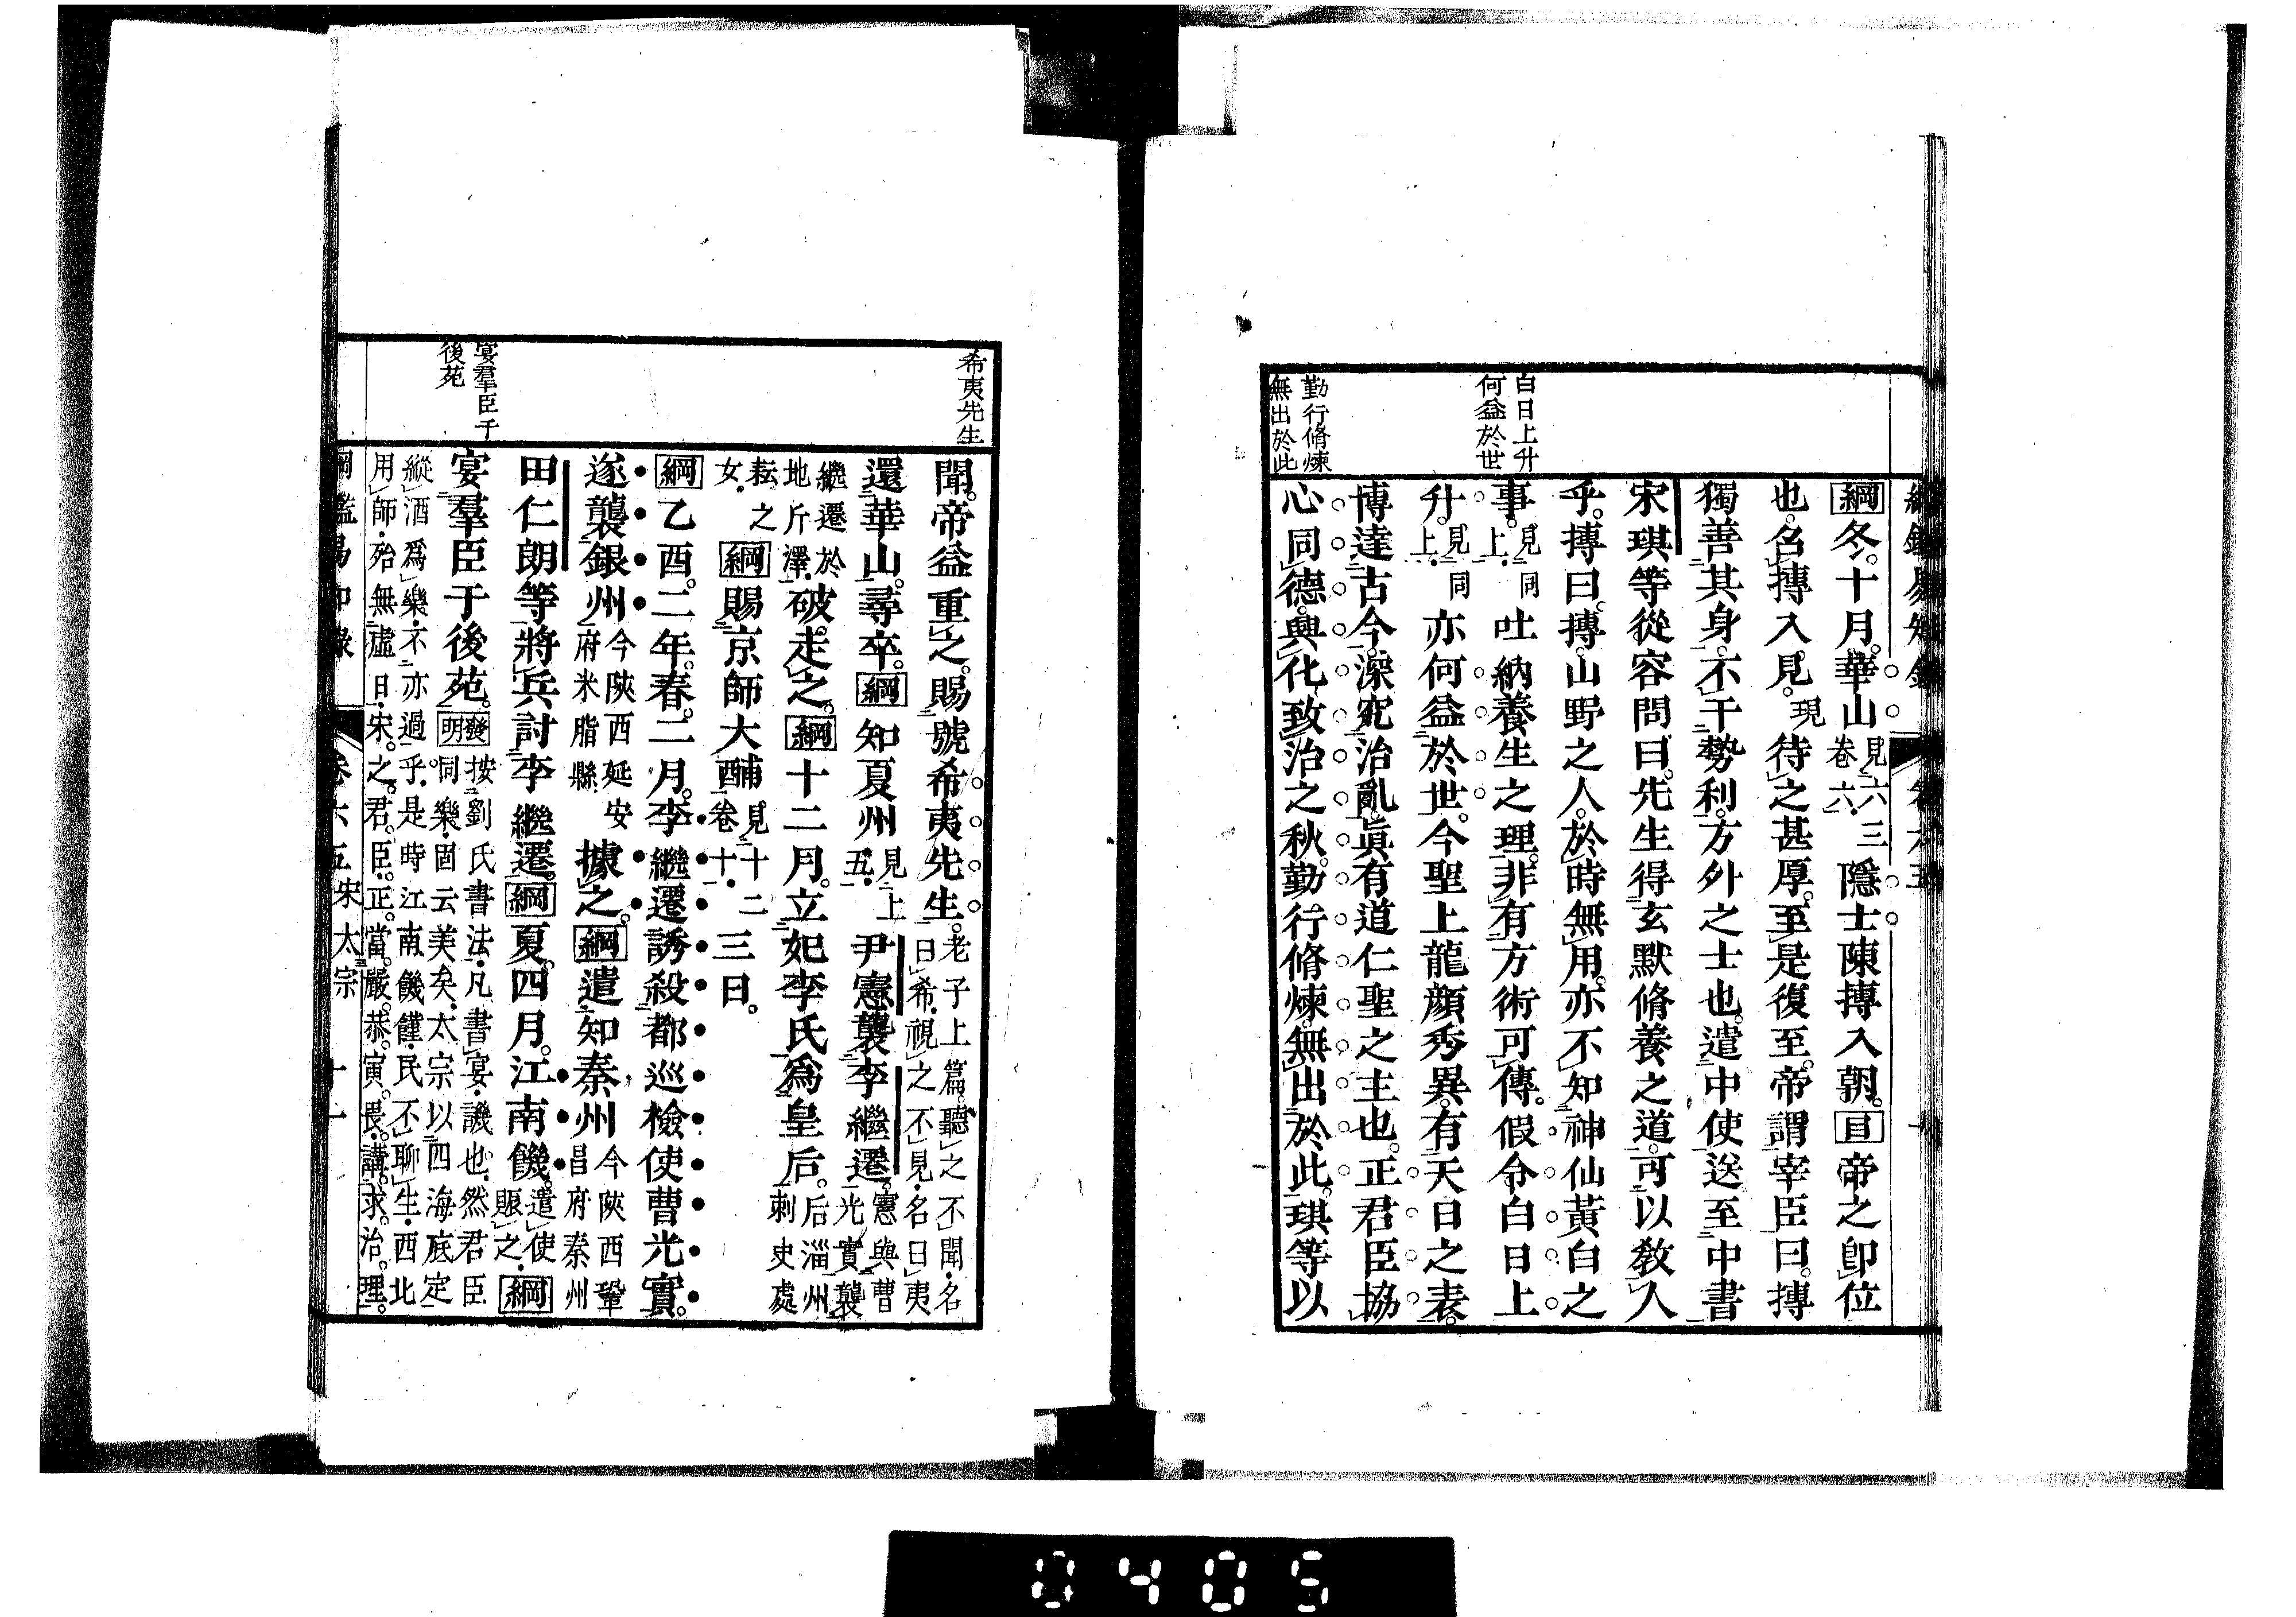 白日上升
何益於世
勤行脩煉
無出於此
綱冬。十月。華山見六三卷六隱士陳摶入朝。目帝之卽位
也。名摶入見。現待之甚厚。至是復至。帝謂宰臣曰。摶
獨善其身。不干勢利。方外之士也。遣中使送至中書
宋琪等從容問曰。先生得玄默脩養之道。可以敎人
乎。摶曰。摶。山野之人。於時無用。亦不知神仙黃白之
事。見上。同吐納養生之理。非有方術可傳。假令白日上
升。見上。同亦何益於世。今聖上龍顔秀異。有天日之表。
博達古今。深究治亂。眞有道仁聖之主也。正君臣協
心同德。興化致治之秋。勤行脩煉。無出於此。琪等以
希夷先生
宴羣臣于
後苑
聞。帝益重之。賜號希夷先生。老子上篇。聽之不聞。名
曰希。視之不見。名曰夷
還華山。尋卒。綱知夏州見上五。尹憲襲李繼遷。憲與曹
光實襲
繼遷於
地斤澤。破走之。綱十二月。立妃李氏爲皇后。后淄州
刺史處
耘之
女。綱賜京師大酺見十二卷十。三日。
綱乙酉。二年。春。二月。李繼遷誘殺都巡檢使曹光實。
遂襲銀州今陝西延安
府米脂縣據之。綱遣知秦州今陝西鞏
昌府秦州
田仁朗等將兵討李繼遷。綱夏。四月。江南饑。遣使
賑之。綱
宴羣臣于後苑。發明按劉氏書法。凡書宴。譏也。然君臣
同樂。固云美矣。太宗以四海底定
縱酒爲樂。不亦過乎。是時江南饑饉。民不聊生。西北
用師。殆無虛日。宋之君臣。正當嚴恭寅畏。講求治理。
卷六五宋太宗 十一